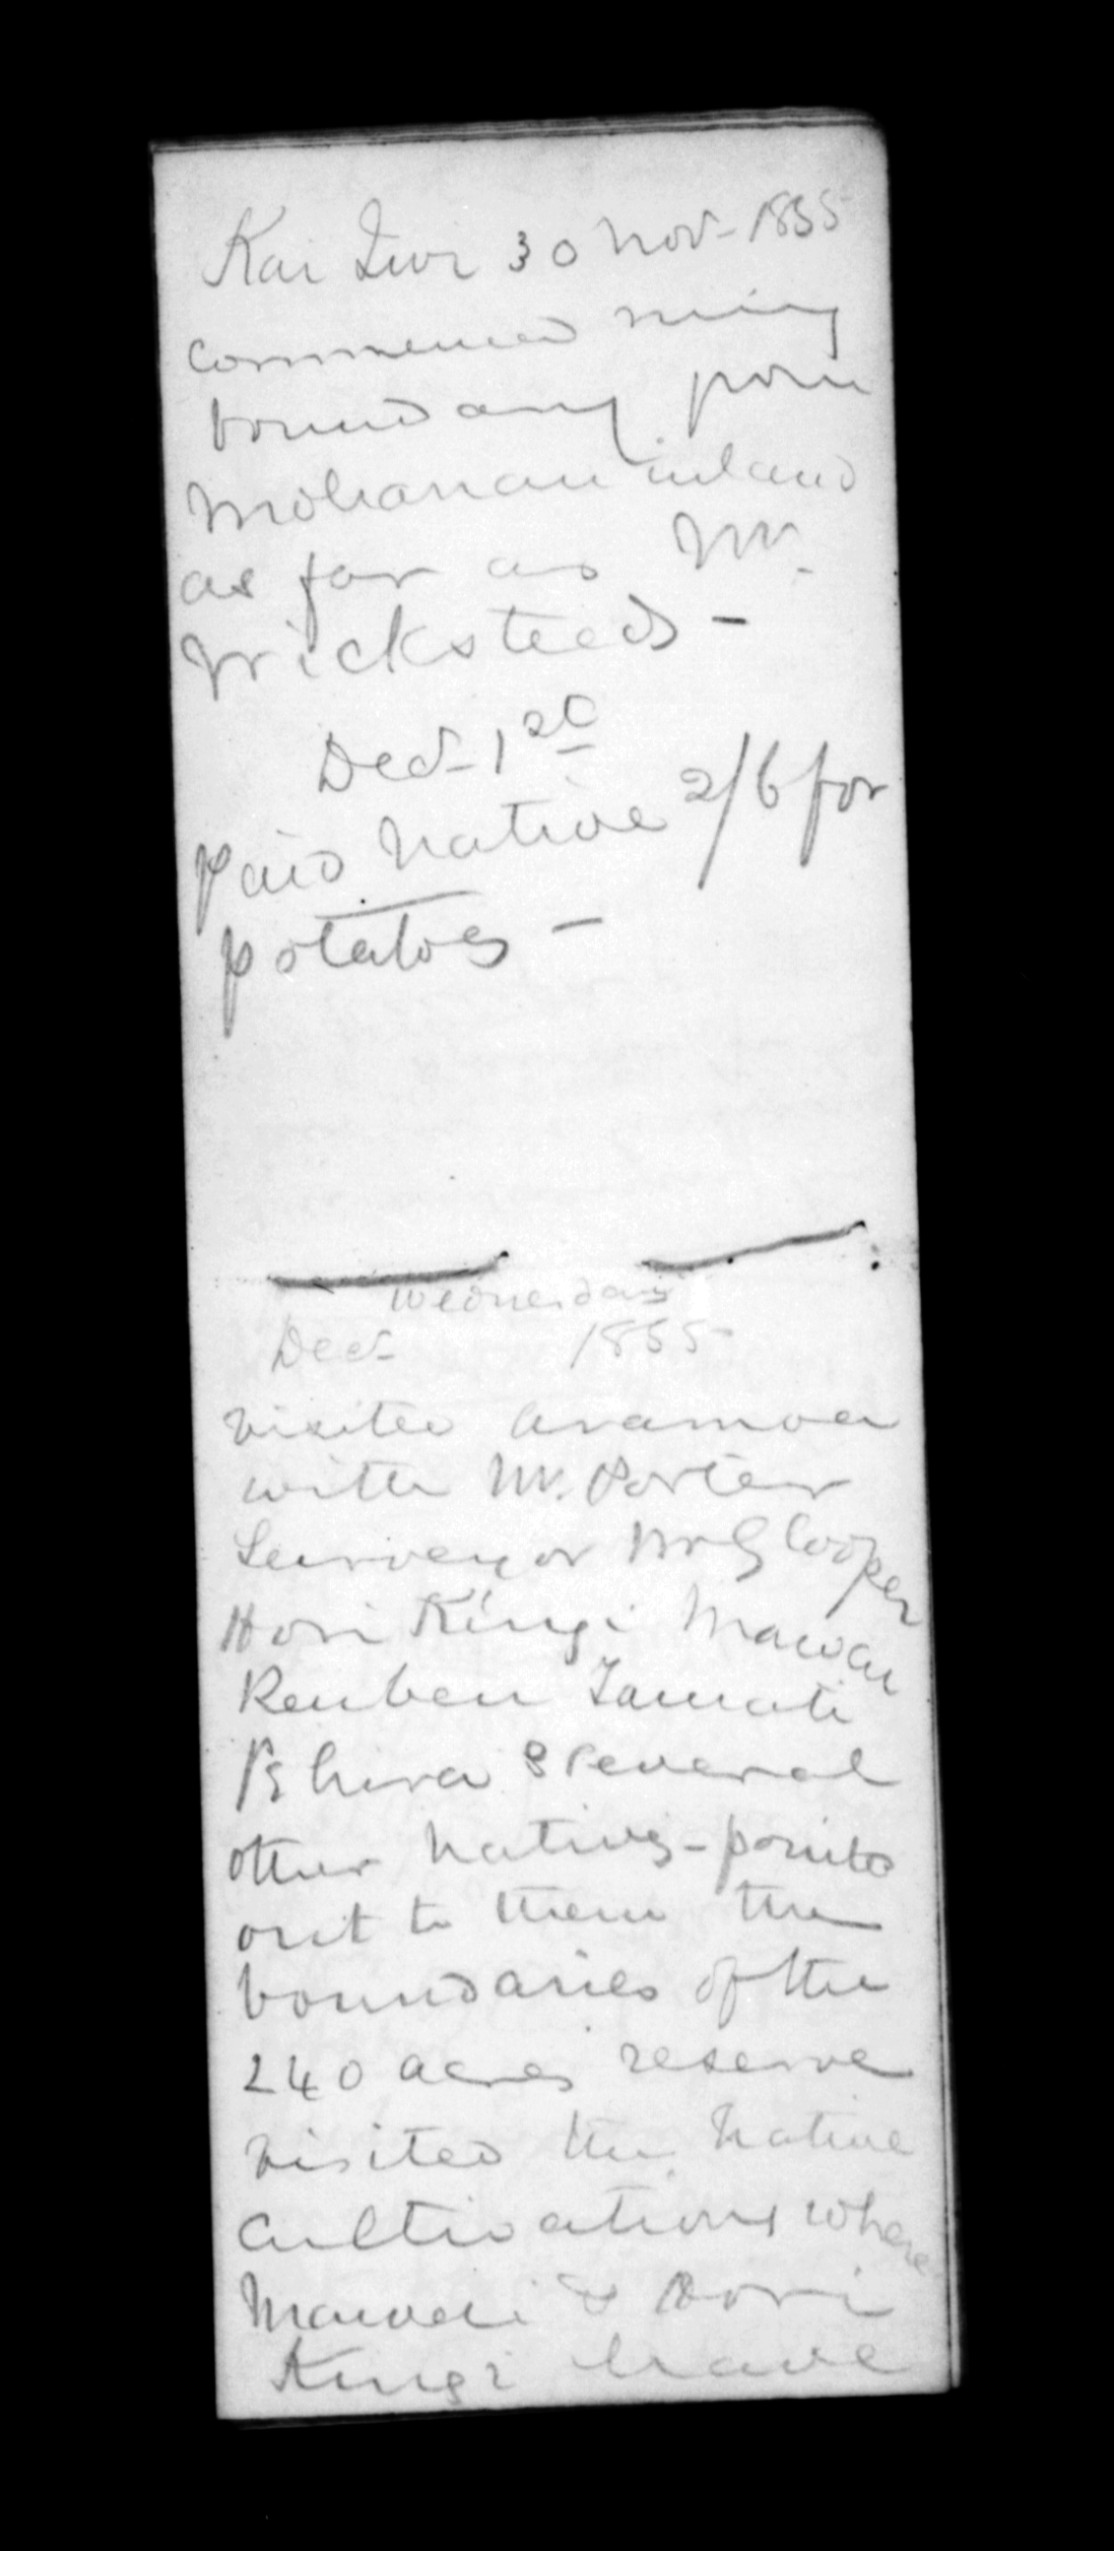 Kai Iwi 30 Nov- 1855
commenced
boundary from
Mohanau inland
as far as Mr.
Wicksteeds -
Dec- 1st
Paid Native 2/6 for
potatoes -
Wednesday
Dec- 1855-
visited Aramoa
with Mr. Porter
Surveyor Mr G Cooper
Hori Kingi Mawai
Reuben Tamati
& several
other natives - pointed
out to them the
boundaries of the
240 acres reserve
visited the Native
cultivations where
Mawai & Hori
Kingi have